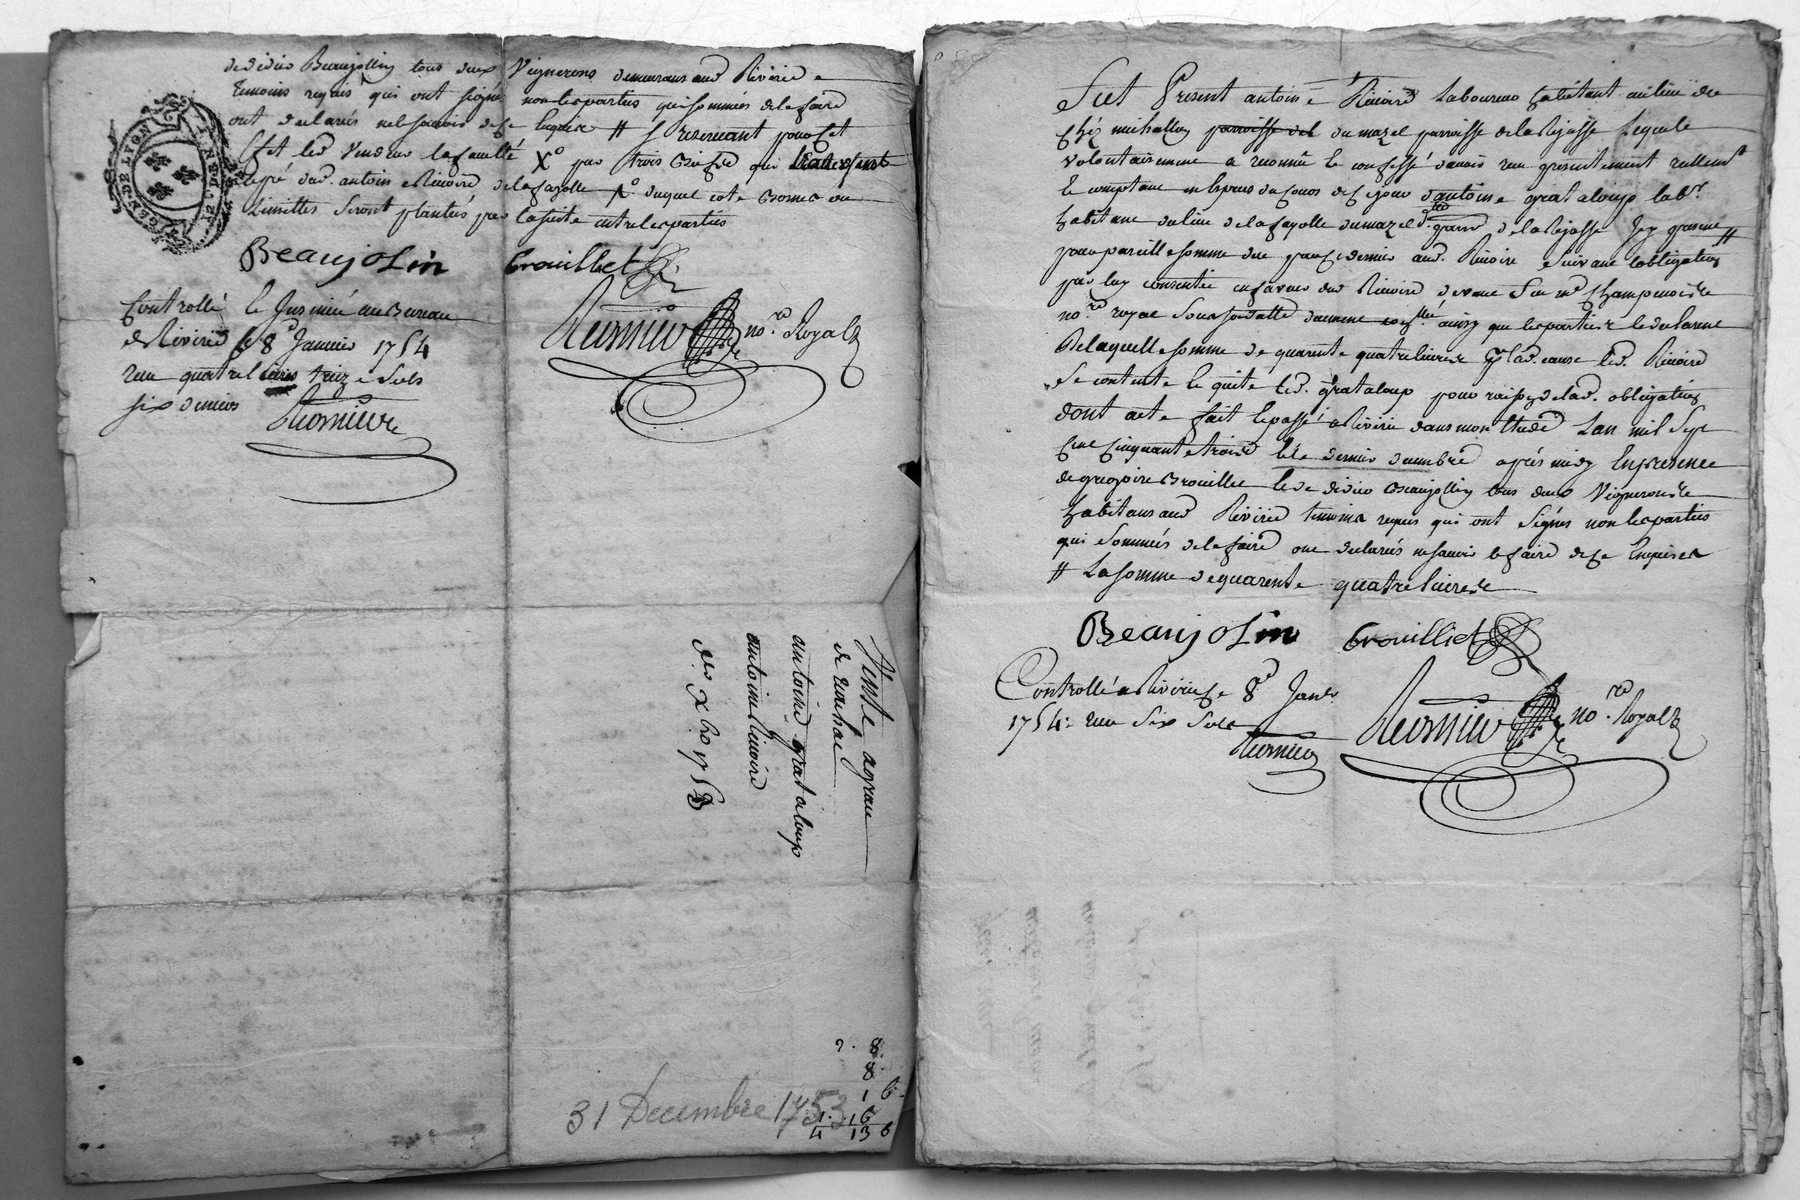 de didier Beaujollin tous deux Vignerons demeurans aud Riverie
temoins requis qui ont signé non les parties qui sommées de le faire
ont declarés nel scavoir de ce Enquise # Se reservant pour cet
effet led Vendeur la faculté X° par trois
dud. antoine Rivoire de la fayolle X° duquel coté bornes ou
Limittes seront plantées par la suite entre les parties
GEN DE LYON
Beaujolin Brouilliet
Controllé et Insinué au Bureau
de Riverie le 8e Janvier 1754
reçu quatre livres treize sols
six deniers
no.re Royal
Vente a grace
de remere
antoine grataloup
antoine Rivoire
du Xbre 1753
8.
8.
1 6
1. 16
4 13 6
31 Decembre 1753
Fut Present antoine Rivoire Laboureur habitant au lieu de
chéz michallon parroisse de du mazel parroisse de la Rajasse Lequel
volontairement a reconnu et confessé d'avoir reçu presentement reellemt
et comptant en especes du cours de ce jour d'antoine grataloup labr.
habitant du lieu de la fayolle du mazel de la Rajasse Icy present #
pour pareille somme due par ce dernier aud. Rivoire suivant l'obligation
par luy consentie en faveur dud Rivoire devant feu me Champenois
nore royal sous sa datte ainsy que les parties le declarent
De laquelle somme de quarente quatre livres pr lad. cause led. Rivoire
se contente et quite led. grataloup pour raison de lad. obligation
dont acte fait et passé a Riverie dans mon Etude Lan mil Sept
Cent Cinquante trois et le dernier decembre après midy En presence
de gregoire Brouillet et de didier Beaujollin tous deux Vignerons
habitans aud Riverie temoins requis qui ont Signés non les parties
qui Sommées de le faire ont declarés ne scavoir le faire de ce Enquises
# La somme de quarente quatre livres
Beaujolin Brouilliet
Controllé a Riverie le 8e Janvr.
1754: reçu Six Sols
no.re Royal